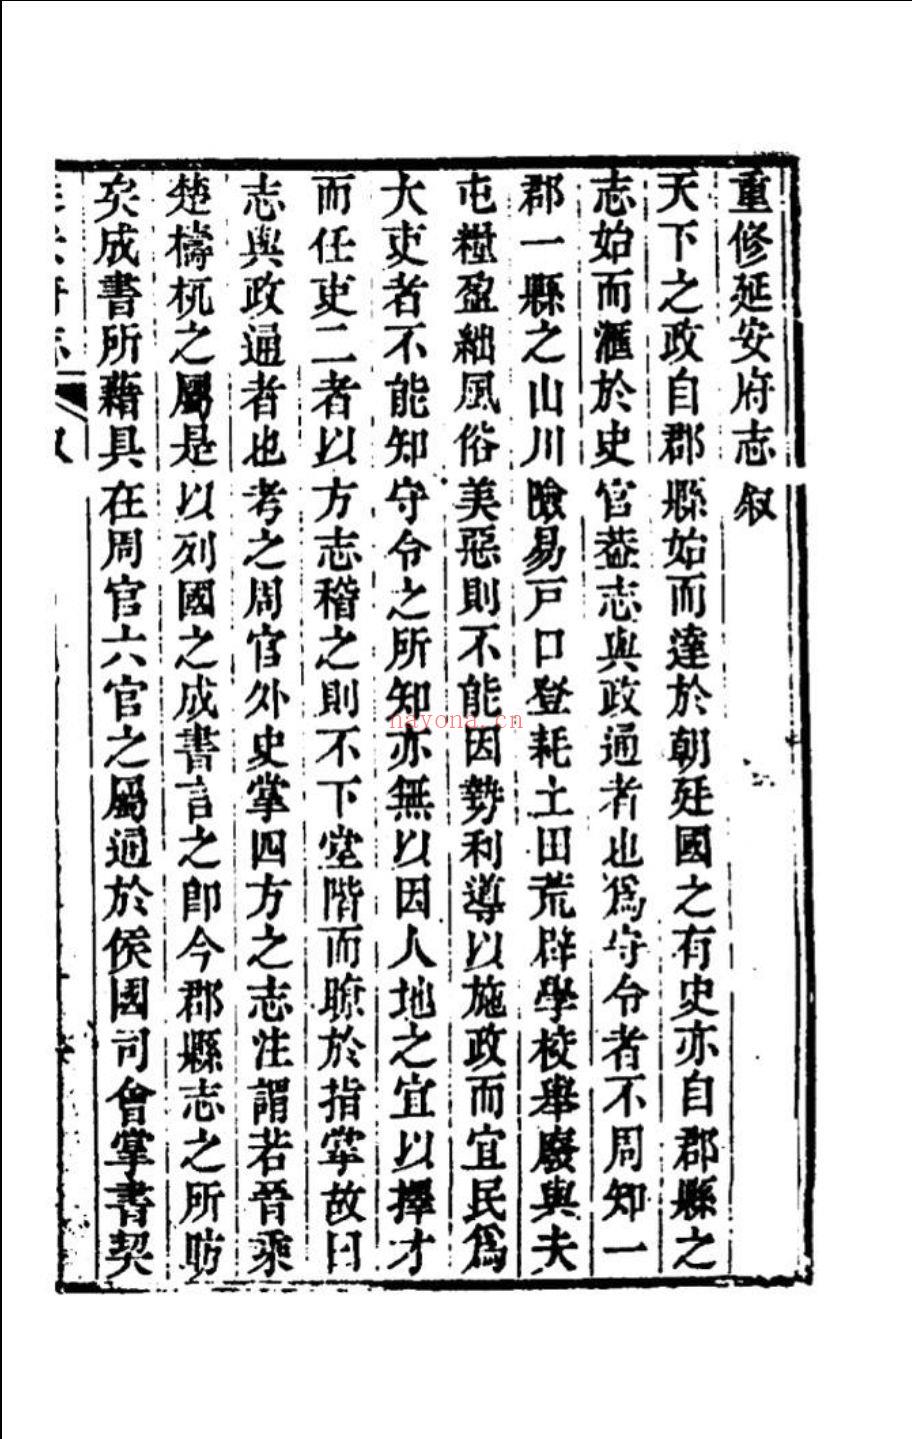 重修延安府志叙
天下之政自郡縣始而達於朝廷國之有史亦自郡縣之
志始而滙於史官葢志與政通者也爲守令者不周知一
郡一縣之山川險易戸口登耗土田荒辟學校舉廢與夫
屯糧盈絀風俗美惡則不能因勢利導以施政而宜民爲
大吏者不能知守令之所知亦無以因人地之宜以擇才
而任吏二者以方志稽之則不下堂階而瞭於指掌故曰
志與政通者也考之周官外史掌四方之志注謂若晉乘
楚檮杌之屬是以列國之成書言之卽今郡縣志之所昉
矣成書所藉具在周官六官之屬通於侯國司會掌書契
nayona.cn